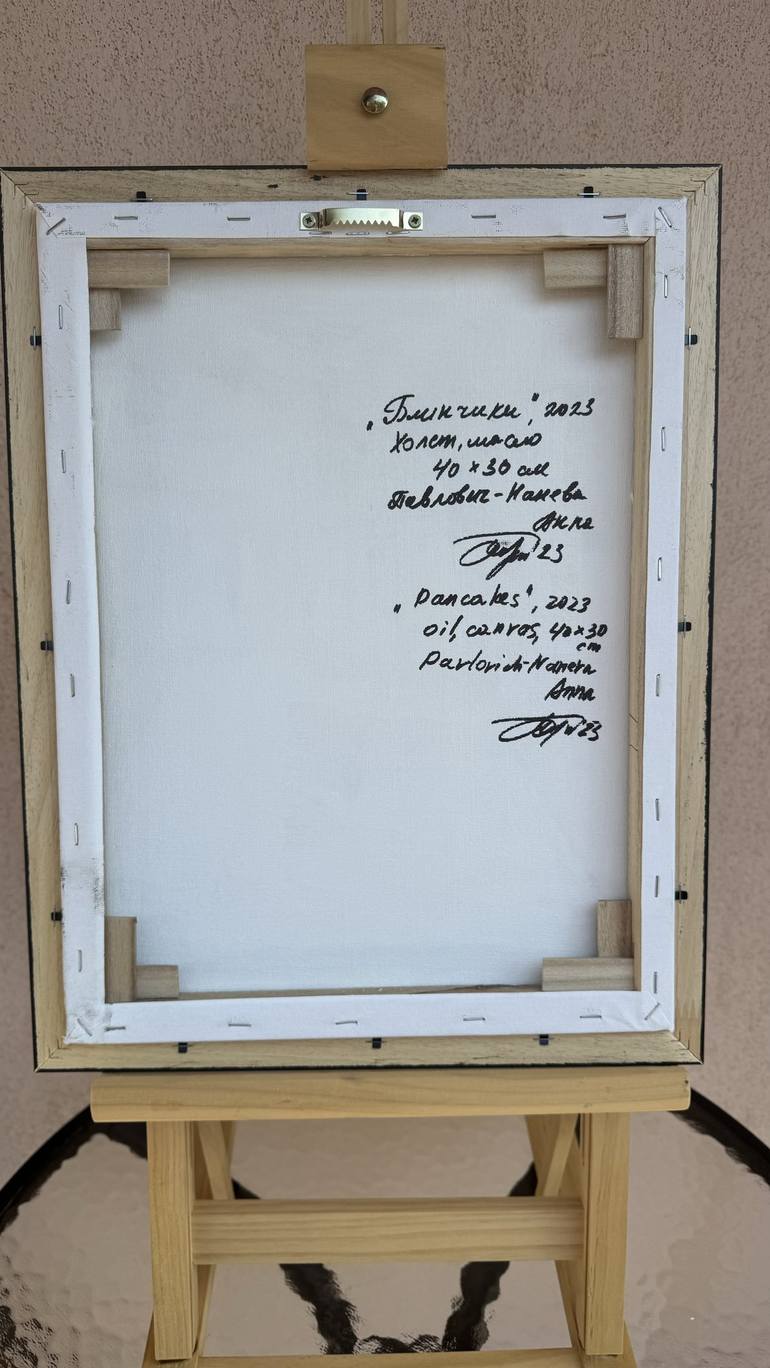 „Блинчики", 2023
Холст, масло
40 × 30 см
Павлович-Канева
Анна
23
„Pancakes", 2023
oil, canvas, 40×30
cm
Pavlovich-Kaneva
Anna
23